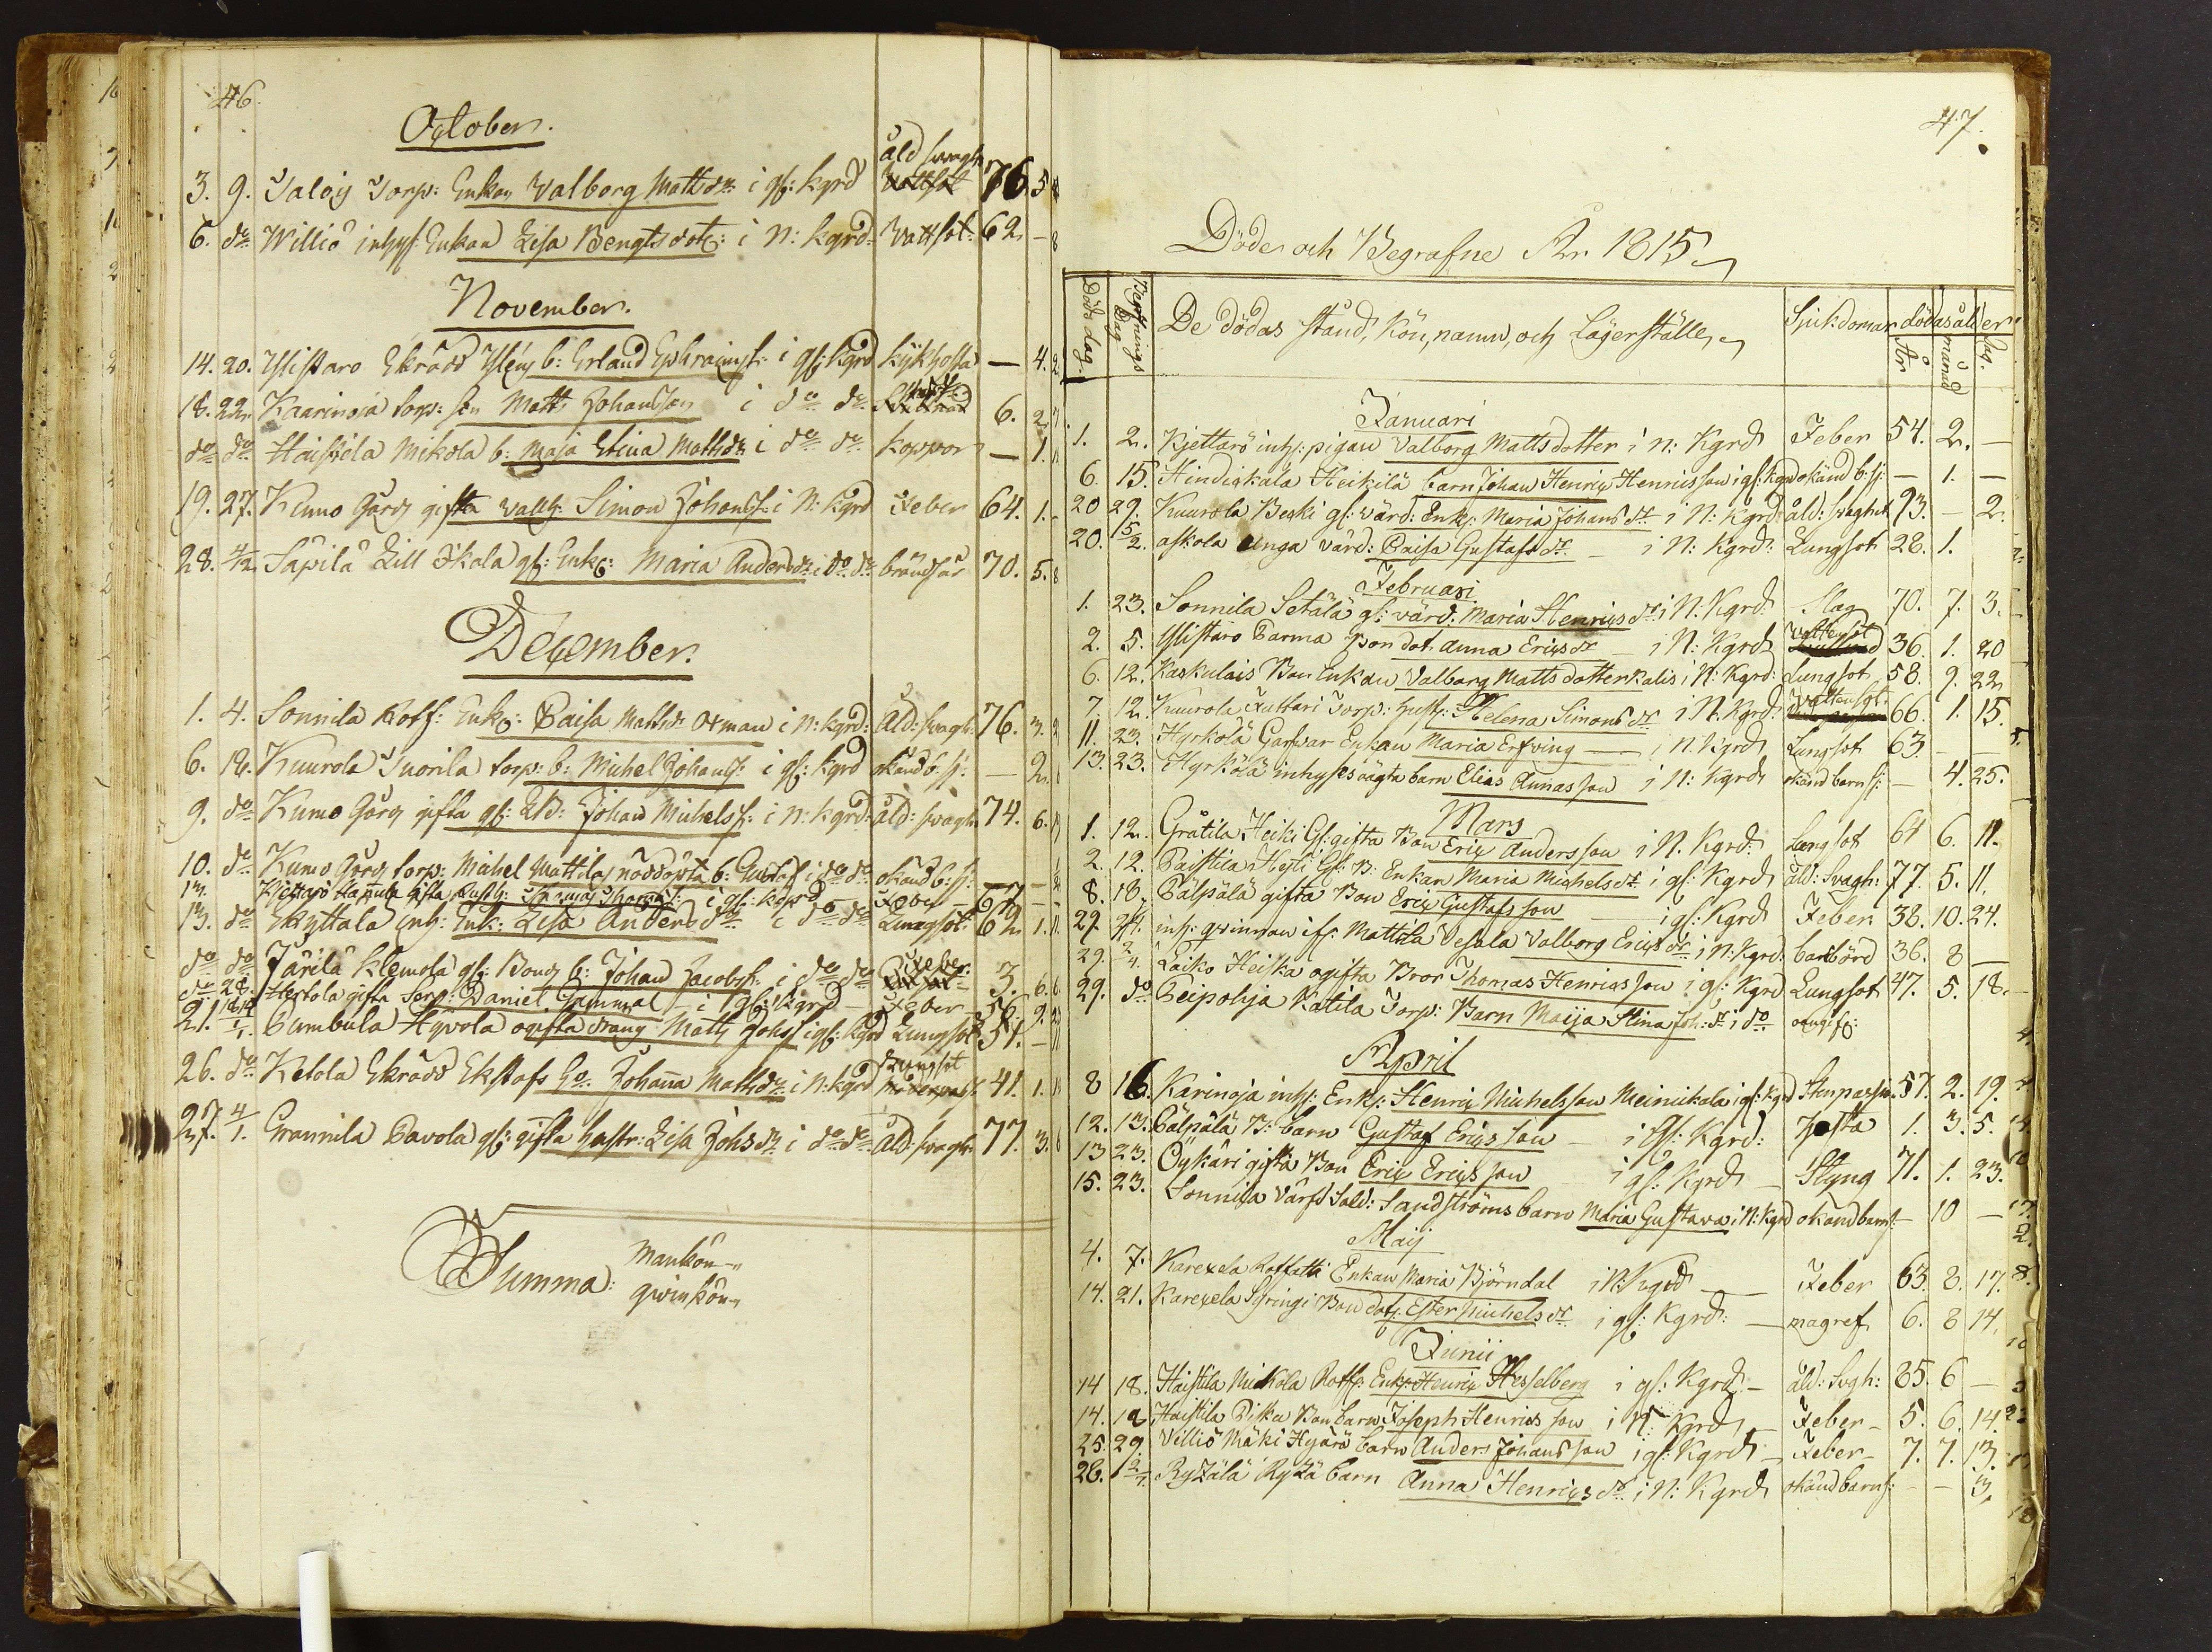 46.
October.
3. 9. Taloij Torp: Enkan Valborg Mattsdr: i gl: kgrd åld swagh: 76. 5
6. do Williö inhys: Enkan Lisa Bengtsdotr: i N: kgrd: Vattsot: 62. - 8
November.
14. 20. Ylistaro Ekrådd b: Erland Ephraimss: i gl: kgrd kykhosta — 4. 2
18. 22. Kaarinoja torp: son Matts Johansson i do do 6. 2.
do do Haistila Mikola b: Maja Stina Mattsdr i do do koppor — 1.
19. 27. Kumo Gård gifta Simon Johanss: i N: kgrd Feber 64. 1.
28. 4/12. Säpilä Lill Ikala gl: Enk: Maria Andersdr: i do do brådsår 70. 5. 8
December.
1. 4. Sonnila Rotf: Enk: Caisa Mattsdr Oxman i N: kgrd: Åld: swagh: 76. 3.
6. 18. Kuurola Juorila torp: b: Michel Johanss: i gl: kgrd okänd b: sj: — 2.
9. do Kumo Gård gifta gl: Johan Michelss: i N: kgrd: åld: swagh: 74. 6.
10. do Kumo Gård torp: Michel Mattilas nöddöpta b: Gustaf i do do okänd b: sj: —
13. Kjettarö gifta Thomas Thomass: i gl: kgrd Feber
13. do Skyttala inh: Enk: Lisa Andersdr: i do do Lungsot: 62. 1.
do do Järilä Klemola gl: Bond b: Johan Jacobss: i do do Feber: 3. 6.
do 28. Hertola gifta Serg: Daniel Gammal i gl: kgrd Feber 56. 9.
21. Cumbula Hyvola ogifta dräng Matts Johss i gl: kgrd Lungsot 51. —
26. do Kelola Ekrådd Ekstofs Johanna Mattsdr: i N: kgrd Lungsot 41. 1.
27. 4/1. Grannila Pavola gl: gifta hustr: Lisa Johsdr: i do do Åld: swagh: 77. 3.
Summa: mankön
qwinkön
47.
Döde och Begrafne År 1815.
Döds dag. Begrafnings Dag De dödas stånd, kön, namn, och lägerställe Sjukdomar dödas ålder
År månad dag.
Januari
1. 2. Kjettarö inhs: pigan Valborg Mattsdotter i N: Kgrd Feber 54. 2. —
6. 15. Hindiskala Heikilä barn Johan Henric Henricsson i gl: Kgrd okänd b: sj: — 1. —
20 29. Kuurola Beski gl: värd: Enk: Maria Johansdr i N: Kgrd: åld: swaght 73. — 2.
20. 5/2. askola unga värd: Caisa Gustafsdr — i N: Kgrd: Lungsot 28. 1.
Februari
1. 23. Sonnila Setälä gl: värd: Maria Henricsdr i N: Kgrd: Slag 70. 7. 3.
2. 5. Ylistaro Parma Bon dot: Anna Ericsdr — i N: Kgrd Vattusot 36. 1. 20
6. 12. Kaskulais Bon Enkan Valborg Mattsdotter Kalis i N: Kgrd: Lungsot 58. 9. 22
7. 12. Kuurola Juttari Torp: hust: Helena Simonsdr i N. Kgrd: Vattensot 66. 1. 15.
11. 23. Hyrkölä Garfvar Enkan Maria Erfving — i N: Kgrd Lungsot 63. — —
13. 23. Hyrkölä inhyses oägta barn Elias Annasson i N: Kgrd okänd barn sj: — 4. 25.
Mars
1. 12. Gråtila Heiki Gl: gifta Bon Eric Andersson i N. Kgrd: Lungsot 64 6. 11.
2. 12. Paistila Hyti Gl: B: Enkan Maria Michelsdr i gl: Kgrd åld: Svagh: 77. 5. 11.
8. 18. Cälpälä gifta Bon Eric Gustafsson — i gl: Kgrd Feber 38. 10. 24.
29. inh: qwinnan ifr: Mattila Vesala Valborg Ericsdr i N: Kgrd: barsbörd 36. 8 —
29. 2/4. Laiko Heiska ogifta Bror Thomas Henricsson i gl: Kgrd Lungsot 47. 5. 18.
29. do Peipohja Katila Torp: Barn Maija Stina Joh: dr i do
April
8 16. Karinoja inhs: Enk: Henric Michelsson Meinikala i gl: kgrd Stenpassion 57. 2. 19.
12. 13. Cälpälä B: barn Gustaf Ericsson — i Gl: Kgrd: Hosta 1. 3. 5.
13 23. Öykäri gifta Bon Eric Ericsson i gl: Kgrd — Styng 71. 1. 23.
15. 23. Sonnila Värfd Sold: Sandströms barn Maria Gustava i N: Kgrd okänd barns: — 10 —
Maij
4. 7. Karexela Rotfatti Enkan Maria Björndal i N: Kgrd — Feber 63. 8. 17.
14. 21. Karexela Syringi Bon dot: Ester Michelsdr i gl: Kgrd: — magref 6. 8 14.
Junii
14 18. Haistila Mickola Rotf: Enk: Henric Hesselberg i gl: Kgrd — åld: Svgh: 85. 6 —
14. 18 Haistila Piska Bon barn Joseph Henricsson i N: Kgrd Feber — 5. 6. 14.
25. 29. Villiö Mäki Hyärö barn Anders Johansson i gl: Kgrd — Feber — 7. 7. 13.
28. 2/7. Ryzälä Ryzä barn Anna Henricsdr i N: Kgrd okänd barns: — — 3.